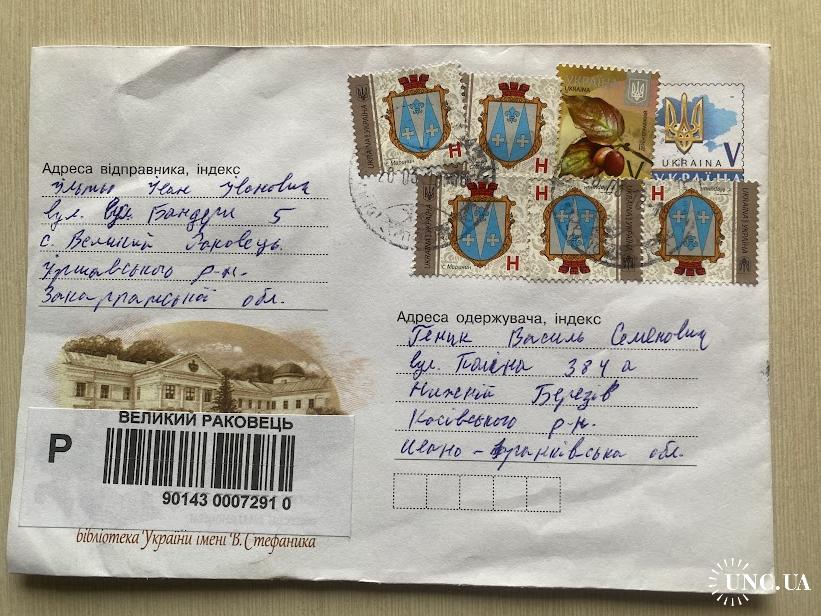 Адреса відправника, індекс
Ільтьо Іван Іванович
вул. Бандери 5
с. Великий Раковець
Іршавського р-н.
Закарпатської обл.
УКРАЇНА
UKRAINA
UKRAINA V
УКРАЇНА
УКРАЇНА UKRAINA
с. Маринин
Н
Н
УКРАЇНА UKRAINA
с. Маринин
Н
Н
Адреса одержувача, індекс
Геник Василь Семенович
вул. Поляна 384 а
Нижній Березів
Косівського р-н.
Івано-Франківська обл.
ВЕЛИКИЙ РАКОВЕЦЬ
Р
90143 0007291 0
бібліотека України імені В. Стефаника
UNC.UA